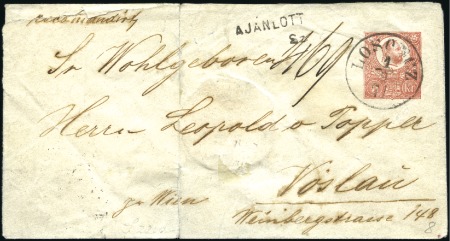 recommandirt
AJÁNLOTT
Sz
LONCZ
Sr Wohlgeboren
Herrn Leopold v Topper
Vöslau
pr Wien
Weinbergstrasse 148
8